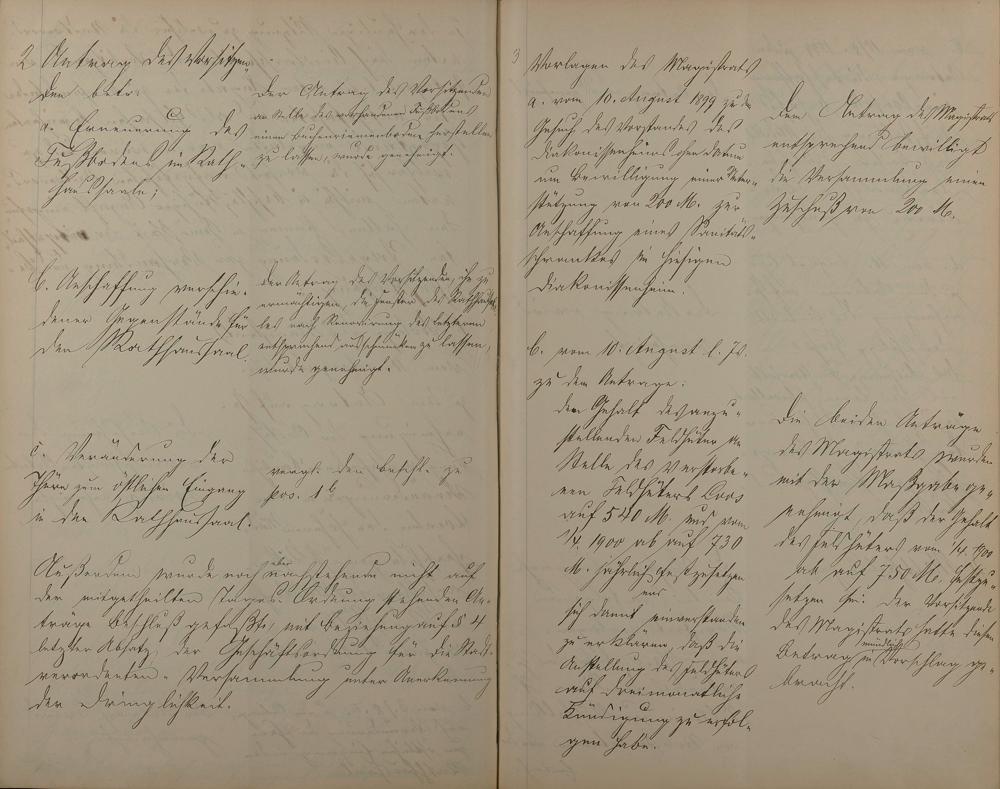 2 Antrag des Vorsitzen-
den betr.
a. Erneuerung des
Fußbodens im Rath-
haussaale;
Der Antrag des Vorsitzenden
an Stelle des vorhandenen Fußbodens
einen Buchenriemenboden herstellen
zu lassen, wurde genehmigt.
b. Anschaffung verschie-
dener Gegenstände für
den Rathhaussaal.
der Antrag des Vorsitzenden, ihn zu
ermächtigen, die Fenster des Rathhaussaa-
les nach Renovirung des letzteren
entsprechend ausschmücken zu lassen,
wurde genehmigt.
c. Veränderung der
Thüre zum östlichen Eingang
in den Rathhaussaal.
vergl. den Beschl. zu
pos. 1 b
Außerdem wurde noch über nachstehende nicht auf
der mitgetheilten Tages-Ordnung stehenden An-
träge Beschluß gefaßt, mit Beziehung auf § 4
letzter Absatz, der Geschäftsordnung für die Stadt-
verordneten-Versammlung unter Anerkennung
der Dringlichkeit.
3 Vorlagen des Magistrats
a. vom 10. August 1899 zu dem
Gesuch des Vorstandes des
Diakonissenheims ohne Datum
um Bewilligung einer Unter-
stützung von 200 M. zur
Anschaffung eines Sanitäts-
schrankes im hiesigen
Diakonissenheim.
Dem Antrag des Magistrats
entsprechend bewilligt
die Versammlung einen
Zuschuß von 200 M.
b. vom 10. August l. Js.
zu dem Antrage:
den Gehalt des anzu-
stellenden Feldhüters an
Stelle des verstorbe-
nen Feldhüters Coos
auf 540 M. und vom
1/4. 1900 ab auf 730
M. jährlich festzusetzen
und
sich damit einverstanden
zu erklären, daß die
Anstellung des Feldhüters
auf dreimonatliche
Kündigung zu erfol-
gen habe.
Die beiden Anträge
des Magistrats wurden
mit der Maßgabe ge-
nehmigt, daß der Gehalt
des Feldhüters vom 1/4. 1900
ab auf 750 M. festzu-
setzen sei. Der Vorsitzende
des Magistrats hatte diesen
Betrag mündlich in Vorschlag ge-
bracht.